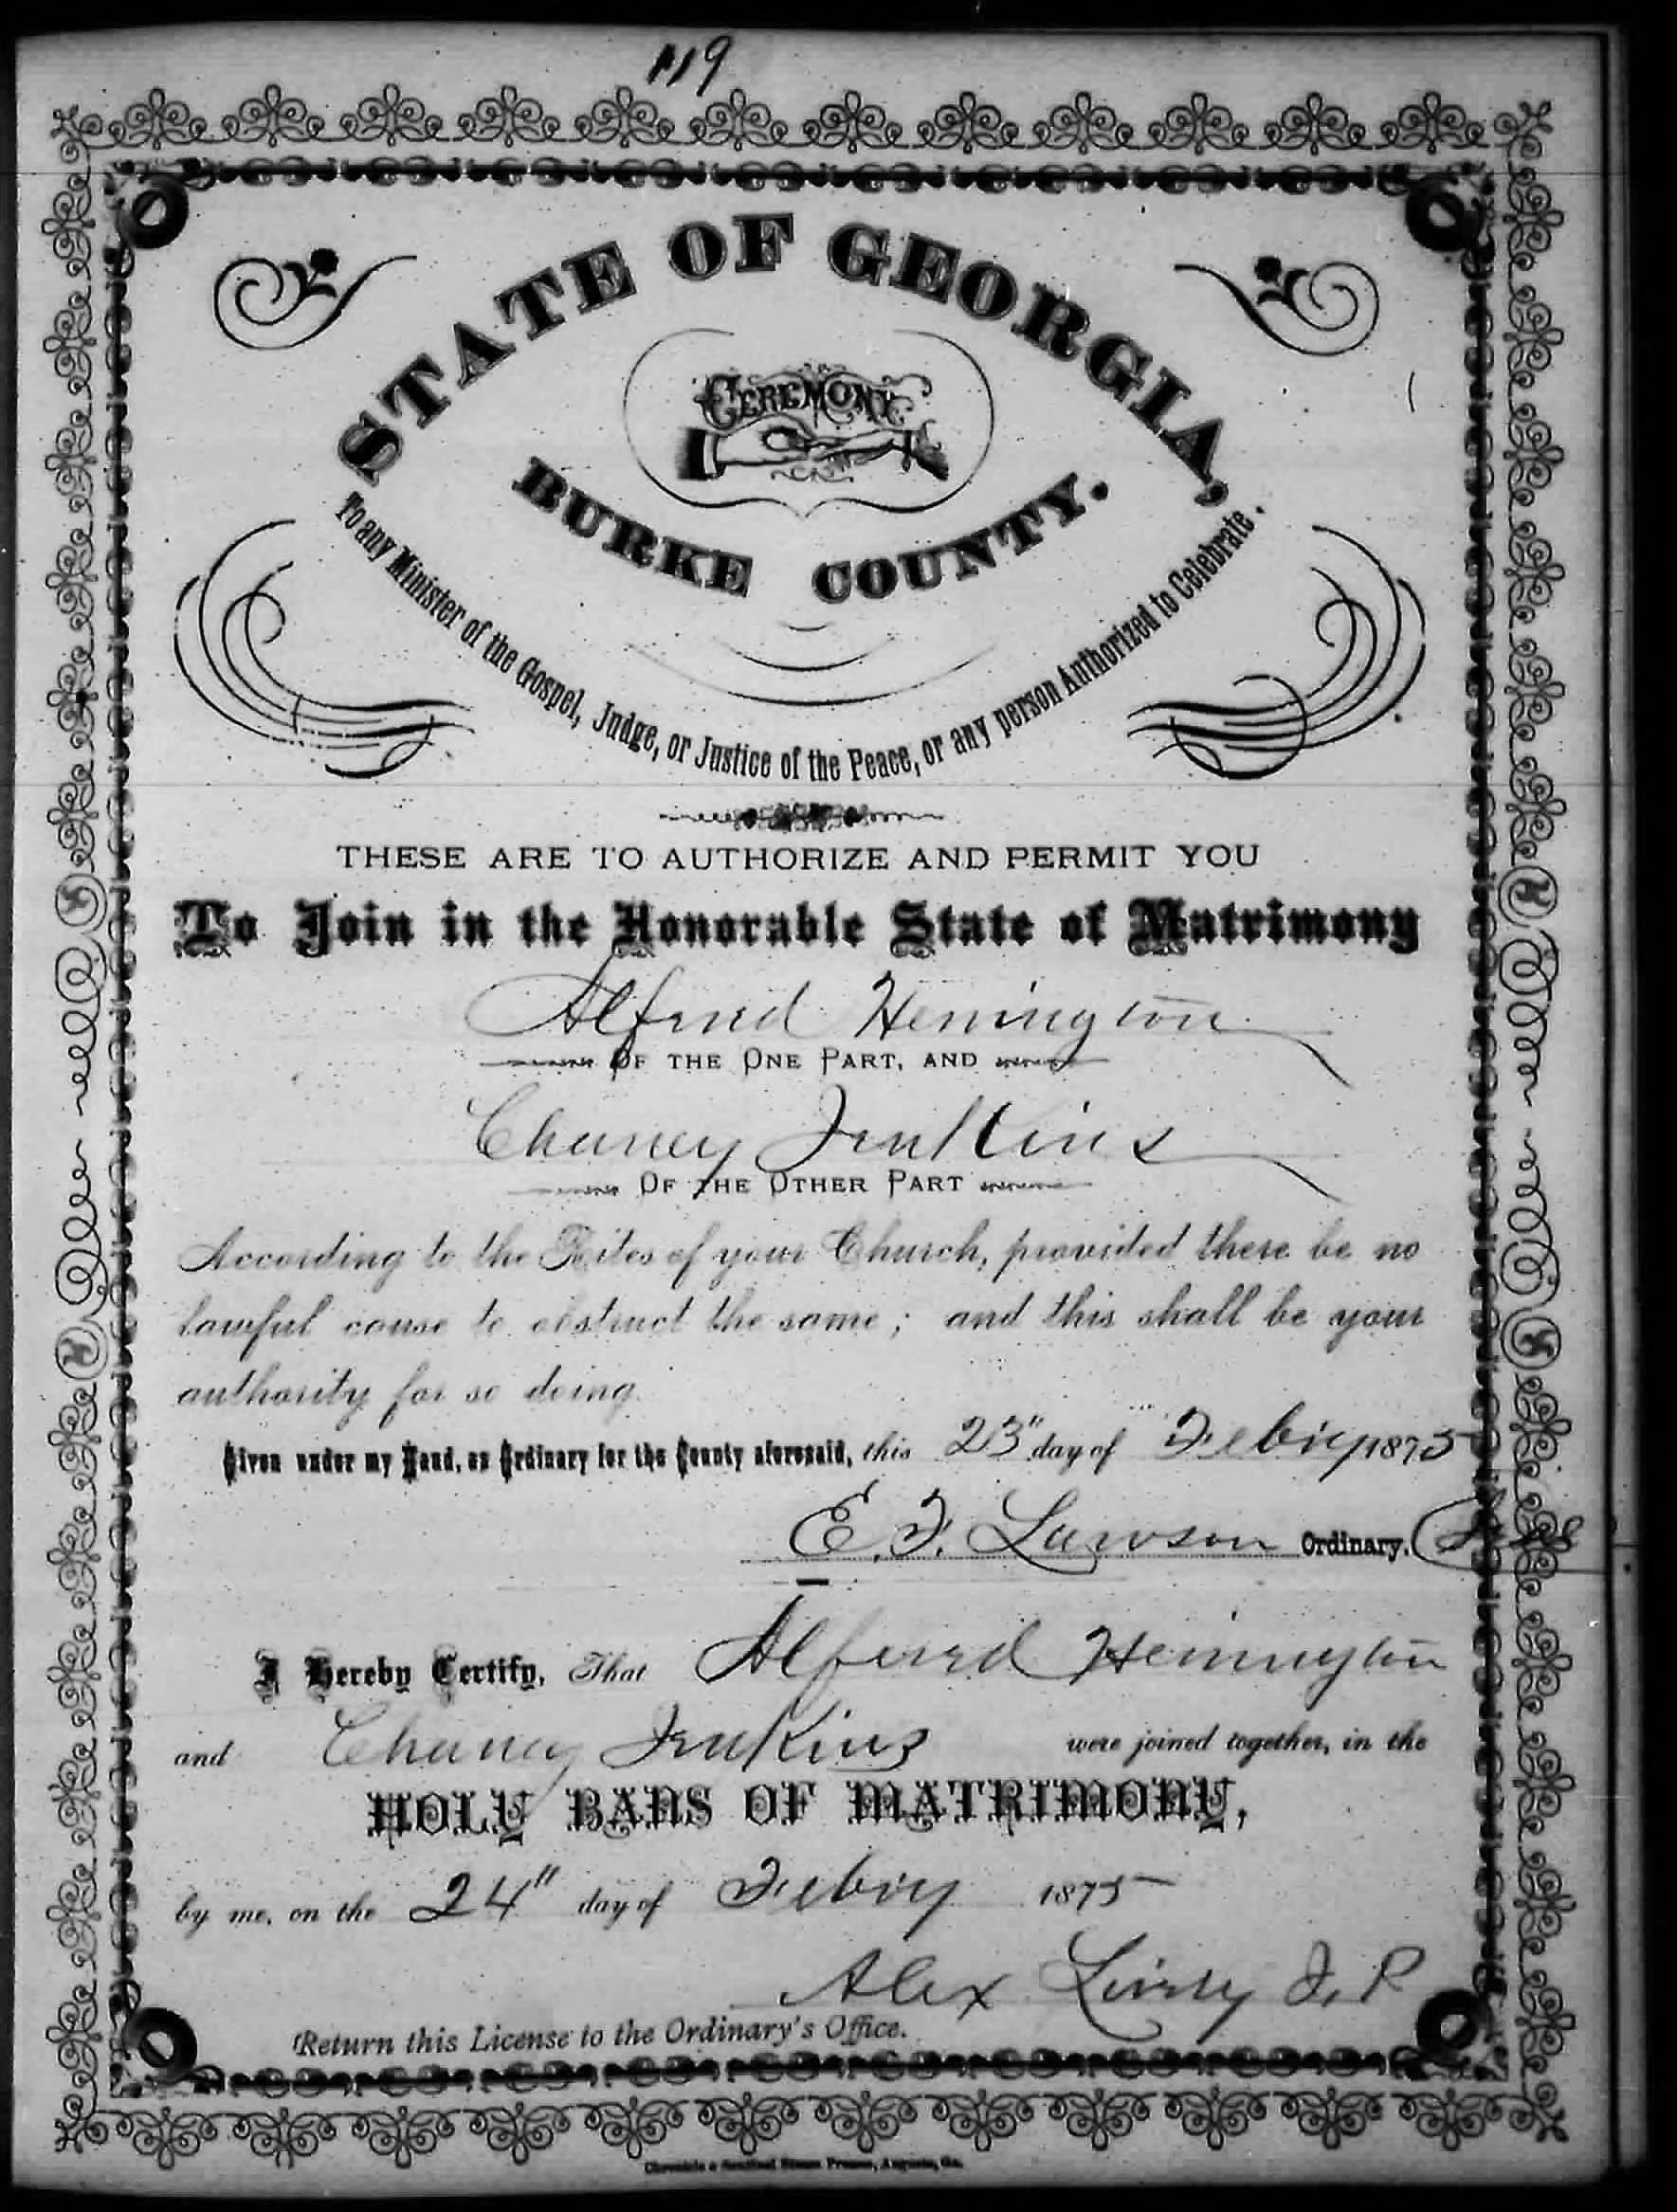 119
STATE OF GEORGIA,
CEREMONY
BURKE COUNTY.
To any Minister of the Gospel, Judge, or Justice of the Peace, or any person Authorized to Celebrate.
THESE ARE TO AUTHORIZE AND PERMIT YOU
To Join in the Honorable State of Matrimony
Alfred Hemington
OF THE ONE PART, AND
Chaney Jenkins
OF THE OTHER PART
According to the Rites of your Church, provided there be no
lawful cause to obstruct the same; and this shall be your
authority for so doing.
Given under my Hand, as Ordinary for the County aforesaid, this 23" day of Febry 1875
E. F. Lawson Ordinary.
I Hereby Certify, That Alfred Hemington
and Chaney Jenkins were joined together, in the
HOLY BANS OF MATRIMONY,
by me, on the 24" day of Febry 1875
Alex J. P
Return this License to the Ordinary's Office.
Chronicle & Sentinel Steam Presses, Augusta, Ga.